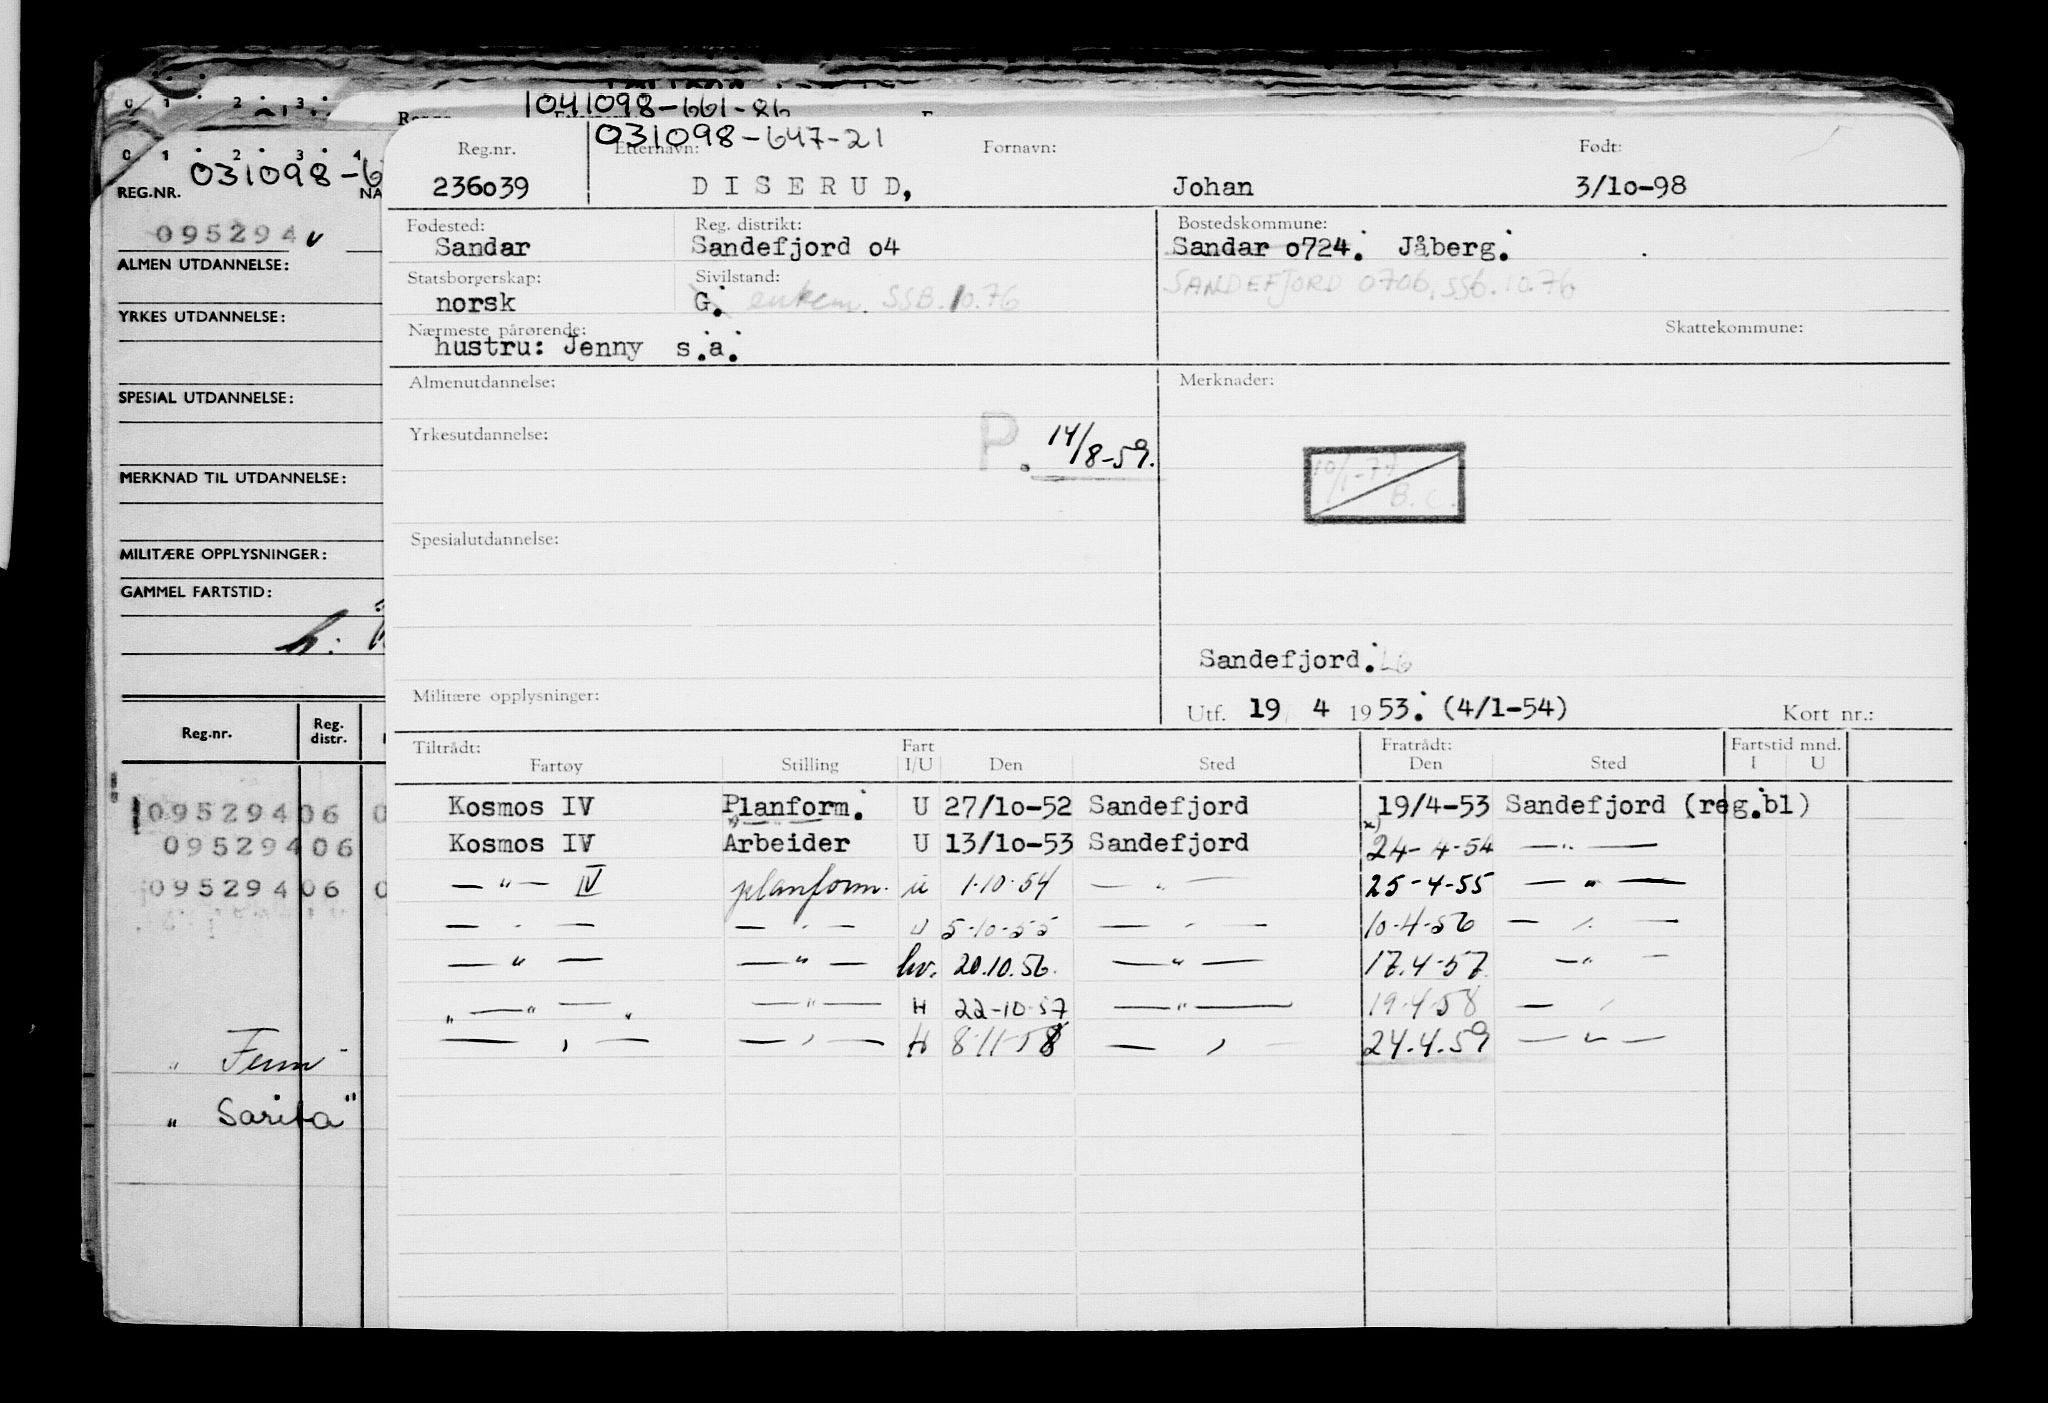 1041098-661-86
031098-647-21
Reg.nr. Etternavn: Fornavn: Født:
236o39 DISERUD, Johan 3/1o-98
Fødested: Reg. distrikt: Bostedskommune:
Sandar Sandefjord o4 Sandar o724. Jåberg.
Statsborgerskap: Sivilstand: SANDEFJORD 0706, SSB.10.76
norsk G. enkem. SSB.10.76
Nærmeste pårørende: Skattekommune:
hustru: Jenny s.a.
Almenutdannelse: Merknader:
Yrkesutdannelse: P. 14/8-59.
B.C.
Spesialutdannelse:
Sandefjord. LG
Militære opplysninger: Utf. 19 4 1953. (4/1-54) Kort nr.:
Tiltrådt: Fart Fratrådt: Fartstid mnd.
Fartøy Stilling I/U Den Sted Den Sted I U
Kosmos IV Planform. U 27/1o-52 Sandefjord 19/4-53 Sandefjord (reg.bl)
Kosmos IV Arbeider U 13/1o-53 Sandefjord x) 24-4-54 —"—
—"— IV planform. u 1-10-54 —"— 25-4-55 —"—
—"— —"— U 5-10-55 —"— 10-4-56 —"—
—"— —"— hv. 20.10.56. —"— 17.4-57 —"—
—"— —"— H 22-10-57 —"— 19-4-58 —"—
—"— —"— H 8-11-58 —"— 24.4.59 —"—
0 1 2 3
0 1 2 3 4
031098-6
REG.NR. NA
095294
ALMEN UTDANNELSE:
YRKES UTDANNELSE:
SPESIAL UTDANNELSE:
MERKNAD TIL UTDANNELSE:
MILITÆRE OPPLYSNINGER:
GAMMEL FARTSTID:
Reg.nr. Reg. distr.
09529406 0
09529406
09529406 0
" Fem
" Sarita"